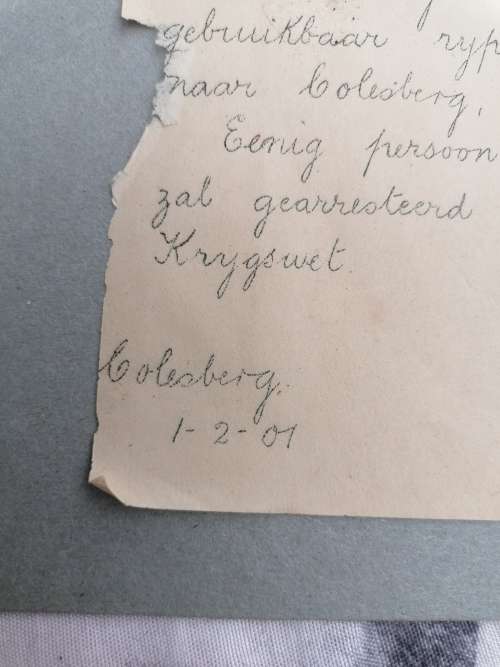 gebruikbaar ryp
naar Colesberg,
Eenig persoon
zal gearresteerd
Krygswet.
Colesberg.
1-2-01